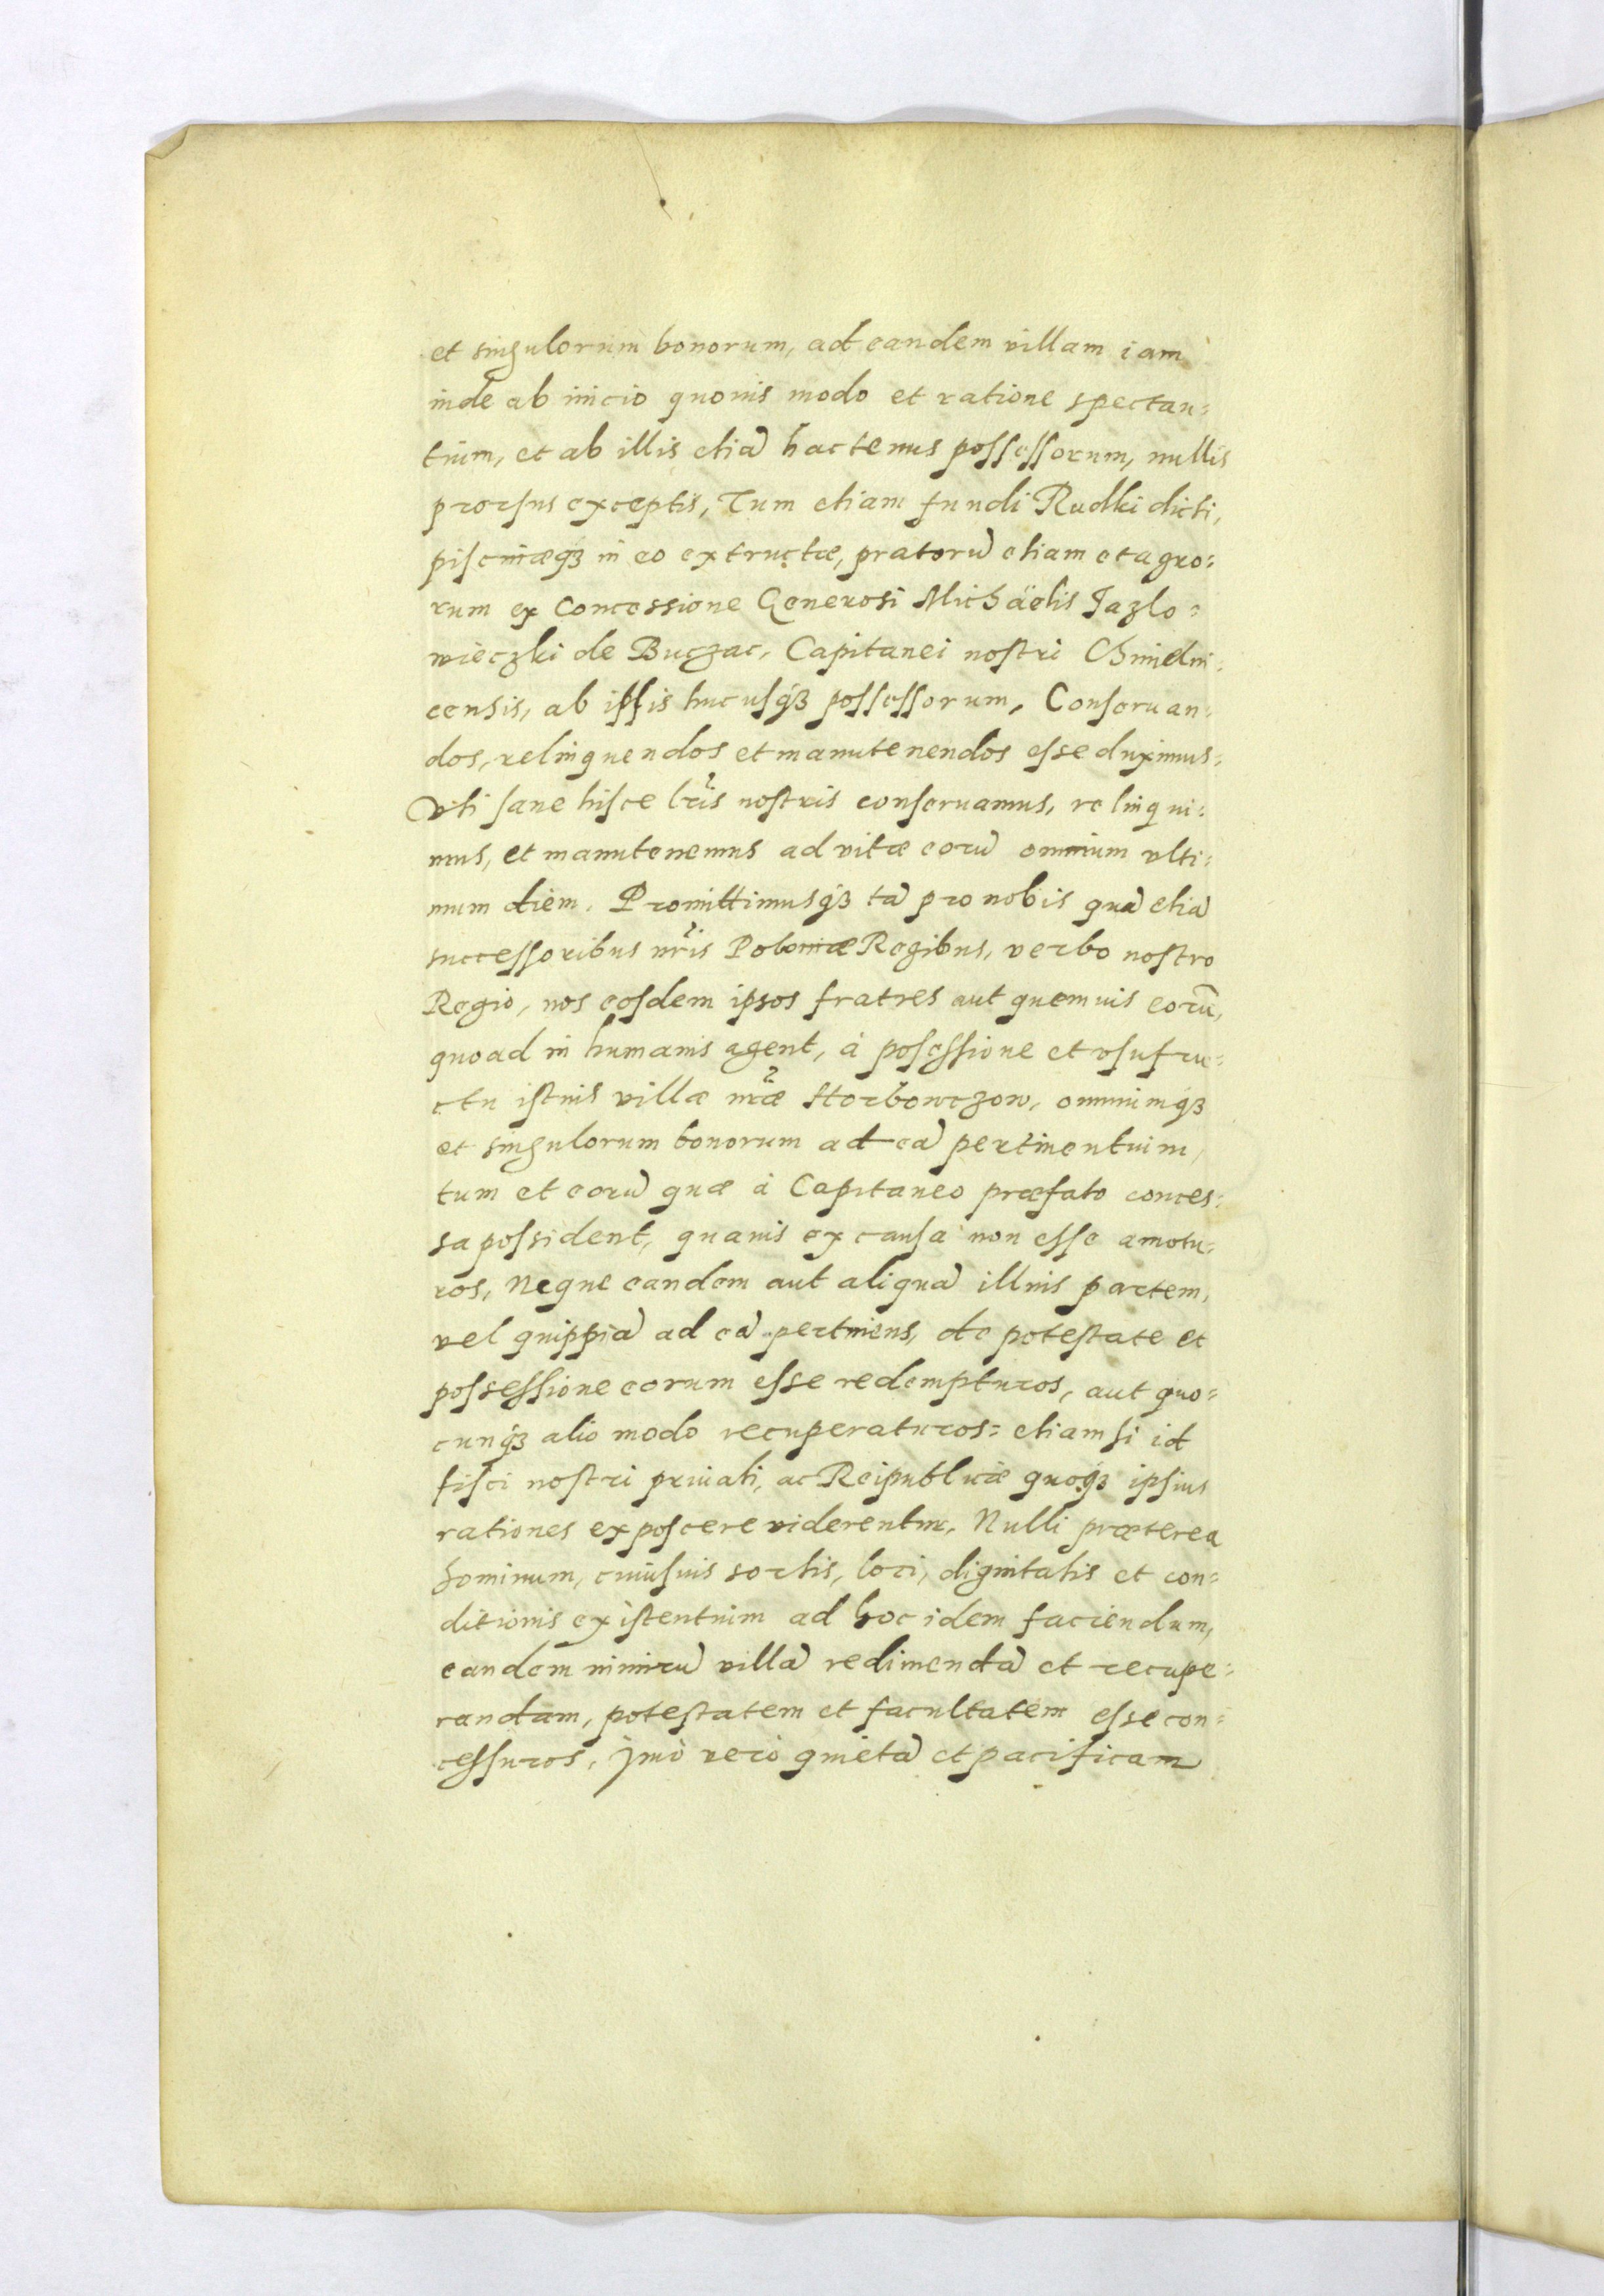 et singulorum bonorum, ad eandem villam iam
inde ab inicio quouis modo et ratione spectan=
tium, et ab illis etiã hactenus possessorum, nullis
prorsus exceptis, Tum etiam fundi Rudki dicti,
piscinæq́ꝫ in eo extructæ, pratorũ etiam et agro=
rum ex Concessione Generosi Michäelis Jazlo=
wieczki de Buczac, Capitanei nostri Chmielni=
censis, ab ipsis hucusq́ꝫ possessorum, Conseruan=
dos, relinquendos et manutenendos esse duximus:
Vti sane hisce lr̃is nostris conseruamus, relinqui=
mus, et manutenemus ad vitæ eorũ omnium vlti=
mum diem. Promittimusq́ꝫ tã pro nobis quã etiã
successoribus nr̃is Poloniæ Regibus, verbo nostro
Regio, nos eosdem ipsos fratres aut quemuis eorũ,
quoad in humanis agent, à posessione et vsufru=
ctu istius villæ nr̃æ Horbowczow, omniumq́ꝫ
et singulorum bonorum ad eã pertinentium,
tum et eorũ quæ à Capitaneo præfato conces=
sa possident, quauis ex causa non esse amotu=
ros, Neque eandem aut aliquã illius partem,
vel quippiã ad eã pertinens, de potestate et
possessione eorum esse redempturos, aut quo=
cunq́ꝫ alio modo recuperaturos: etiam si id
fisci nostri priuati, ac Reipublicæ quoq́ꝫ ipsius
rationes exposcere viderentur, Nulli præterea
hominum, cuiusuis sortis, loci, dignitatis et con=
ditionis existentium ad hoc idem faciendum,
eandem nimirũ villã redimendã et recupe=
randam, potestatem et facultatem esse con=
cessuros, Jmò verò quietã et pacificam